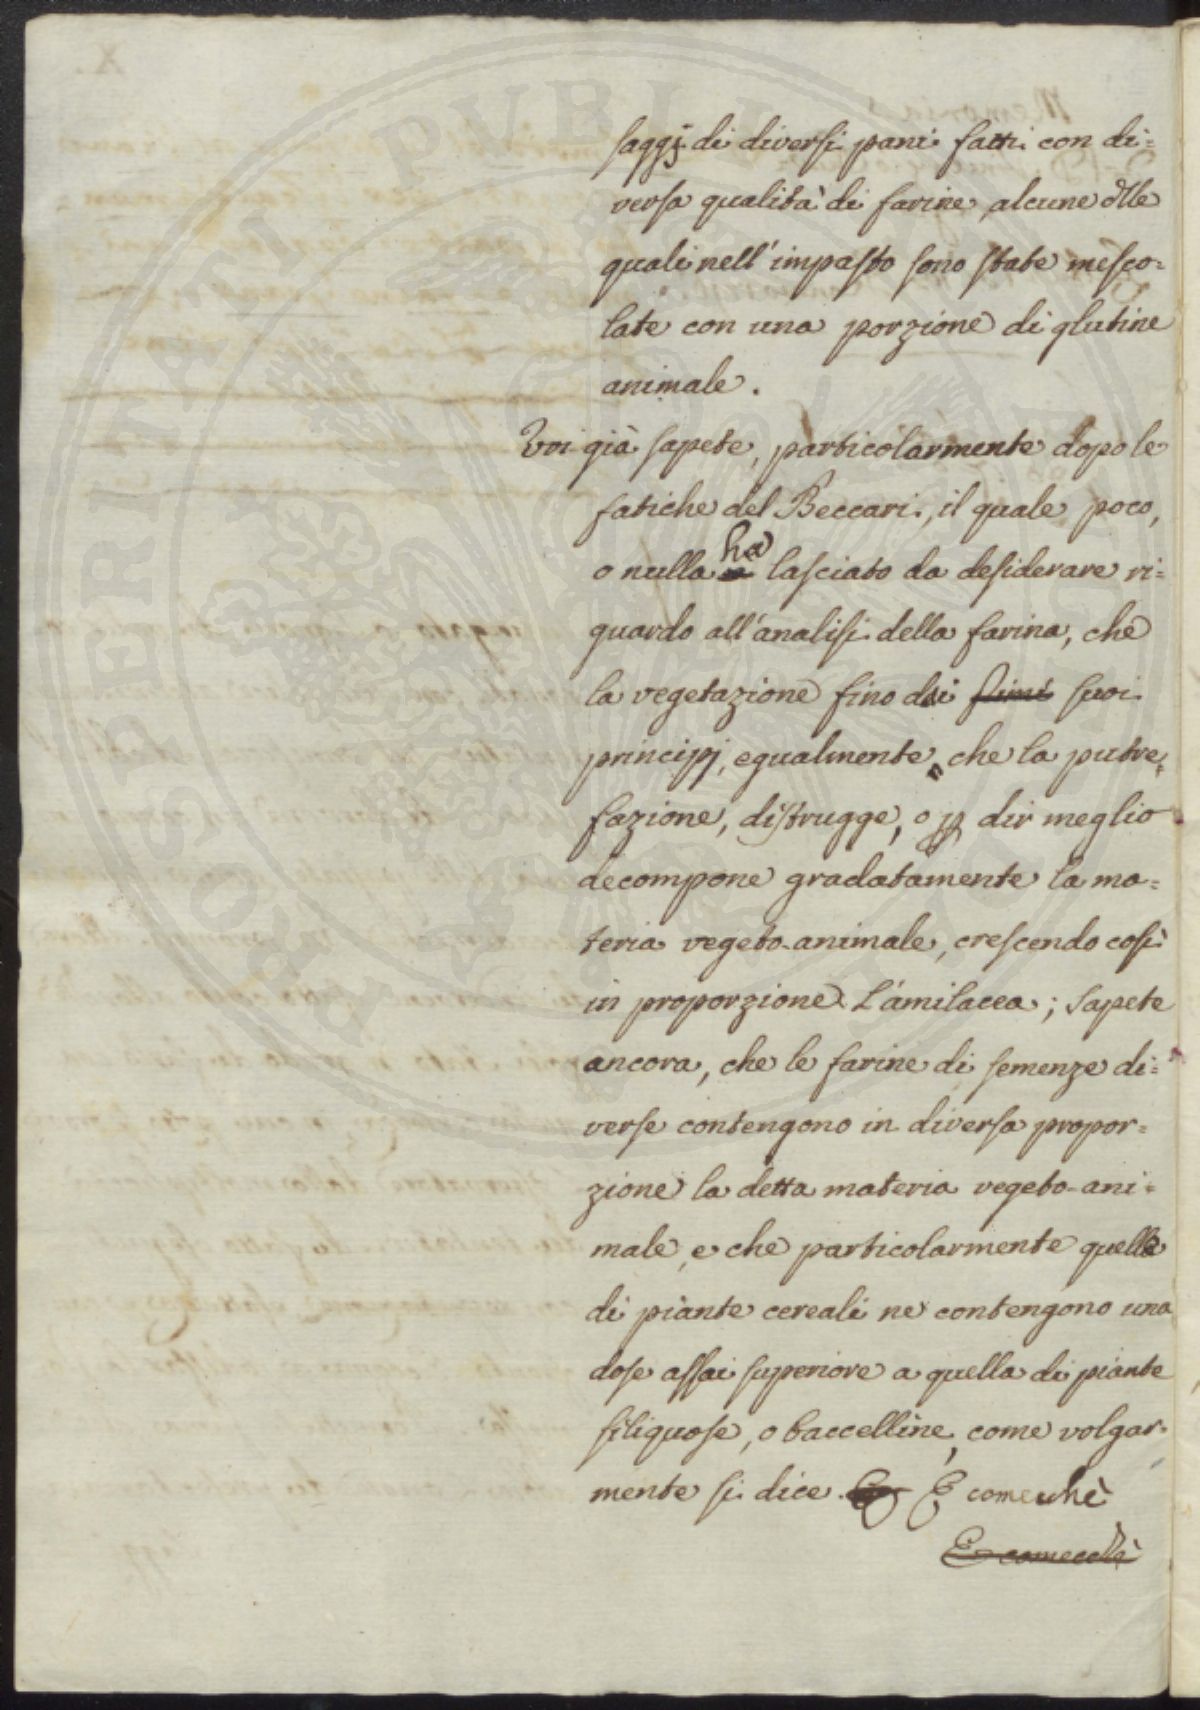 saggj di diversi pani fatti con di=
versa qualità di farine, alcune dlle
quali nell'impasto sono state mesco=
late con una porzione di glutine
animale.
Voi già sapete, particolarmente dopo le
fatiche del Beccari, il quale poco,
o nulla ha lasciato da desiderare ri=
guardo all'analisi della farina, che
la vegetazione fino dai primi suoi
principj, egualmente, che la putre=
fazione, distrugge, o p dir meglio
decompone gradatamente la ma=
teria vegeto-animale, crescendo così
in proporzione L'amilacea; sapete
ancora, che le farine di semenze di=
verse contengono in diversa propor=
zione la detta materia vegeto-ani=
male, e che particolarmente quelle
di piante cereali ne contengono una
dose assai superiore a quella di piante
siliquose, o baccelline, come volgar=
mente si dice. E comechè
E comecchè
PROSPERITATI PUBLICAE AUGENDAE